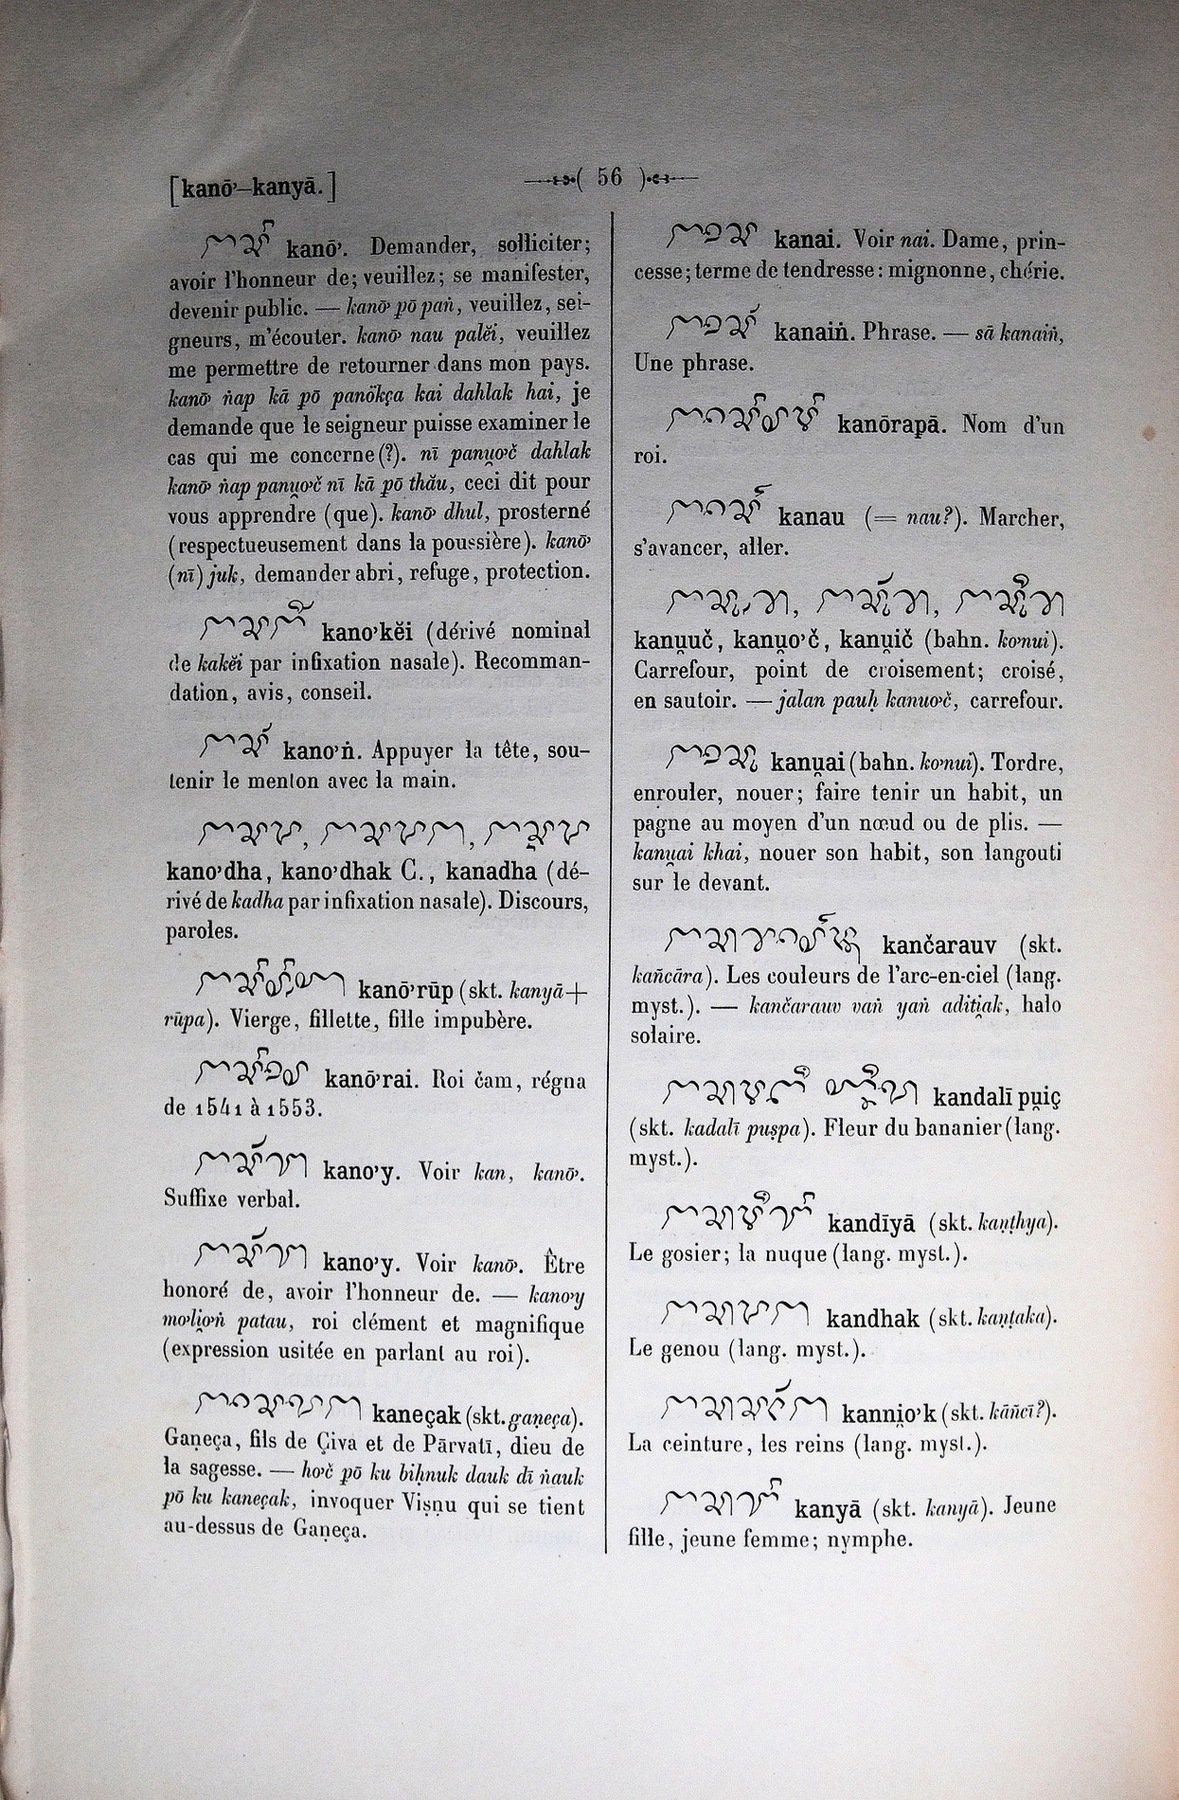 [kanō’–kanyā.]
( 56 )
kanō’. Demander, solliciter;
avoir l’honneur de; veuillez; se manifester,
devenir public. — kanō’ pō paṅ, veuillez, sei-
gneurs, m’écouter. kanō’ nau palĕi, veuillez
me permettre de retourner dans mon pays.
kanō’ ṅap kā pō panökça kai dahlak hai, je
demande que le seigneur puisse examiner le
cas qui me concerne (?). nī panu̯o’č dahlak
kanō’ ṅap panu̯o’č nī kā pō thău, ceci dit pour
vous apprendre (que). kanō’ dhul, prosterné
(respectueusement dans la poussière). kanō’
(nī) juk, demander abri, refuge, protection.
kano’kĕi (dérivé nominal
de kakĕi par infixation nasale). Recomman-
dation, avis, conseil.
kano’ṅ. Appuyer la tête, sou-
tenir le menton avec la main.
kano’dha, kano’dhak C., kanadha (dé-
rivé de kadha par infixation nasale). Discours,
paroles.
kanō’rūp (skt. kanyā+
rūpa). Vierge, fillette, fille impubère.
kanō’rai. Roi čam, régna
de 1541 à 1553.
kano’y. Voir kan, kanō’.
Suffixe verbal.
kano’y. Voir kanō’. Être
honoré de, avoir l’honneur de. — kano’y
mo’li̯o’ṅ patau, roi clément et magnifique
(expression usitée en parlant au roi).
kaneçak (skt. gaṇeça).
Gaṇeça, fils de Çiva et de Pārvatī, dieu de
la sagesse. — ho’č pō ku biḥnuk dauk dī ṅauk
pō ku kaneçak, invoquer Viṣṇu qui se tient
au-dessus de Gaṇeça.
kanai. Voir nai. Dame, prin-
cesse; terme de tendresse: mignonne, chérie.
kanaiṅ. Phrase. — sā kanaiṅ,
Une phrase.
kanōrapā. Nom d’un
roi.
kanau (= nau?). Marcher,
s’avancer, aller.
kanu̯uč, kanu̯o’č, kanu̯ič (bahn. ko’nui).
Carrefour, point de croisement; croisé,
en sautoir. — jalan pauḥ kanuo’č, carrefour.
kanu̯ai (bahn. ko’nui). Tordre,
enrouler, nouer; faire tenir un habit, un
pagne au moyen d’un nœud ou de plis. —
kanu̯ai khai, nouer son habit, son langouti
sur le devant.
kančarauv (skt.
kañcāra). Les couleurs de l’arc-en-ciel (lang.
myst.). — kančarauv vaṅ yaṅ aditi̯ak, halo
solaire.
kandalī pu̯iç
(skt. kadalī puṣpa). Fleur du bananier (lang.
myst.).
kandīyā (skt. kaṇṭhya).
Le gosier; la nuque (lang. myst.).
kandhak (skt. kaṇṭaka).
Le genou (lang. myst.).
kanni̯o’k (skt. kāñcī?).
La ceinture, les reins (lang. myst.).
kanyā (skt. kanyā). Jeune
fille, jeune femme; nymphe.